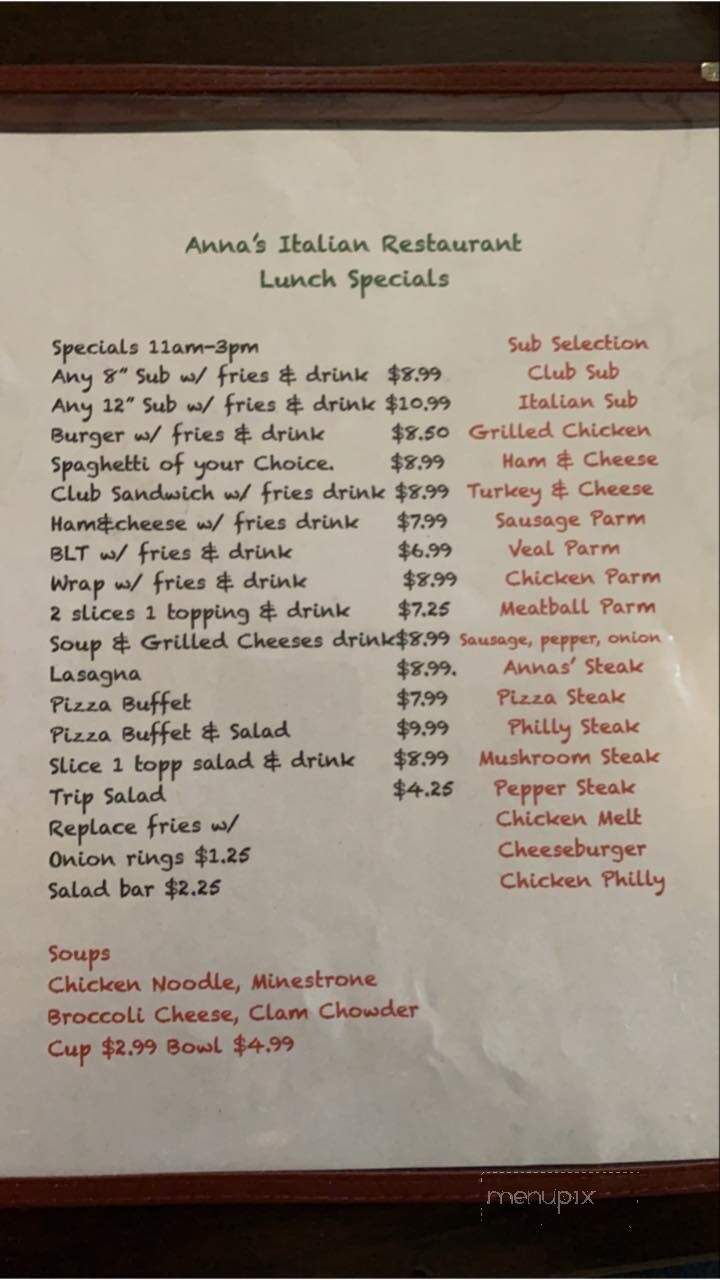 Anna's Italian Restaurant
Lunch Specials
Specials 11am-3pm
Any 8" Sub w/ fries & drink $8.99
Any 12" Sub w/ fries & drink $10.99
Burger w/ fries & drink $8.50
Spaghetti of your Choice. $8.99
Club Sandwich w/ fries drink $8.99
Ham&cheese w/ fries drink $7.99
BLT w/ fries & drink $6.99
Wrap w/ fries & drink $8.99
2 slices 1 topping & drink $7.25
Soup & Grilled Cheeses drink$8.99
Lasagna $8.99.
Pizza Buffet $7.99
Pizza Buffet & Salad $9.99
Slice 1 topp salad & drink $8.99
Trip Salad $4.25
Replace fries w/
Onion rings $1.25
Salad bar $2.25
Sub Selection
Club Sub
Italian Sub
Grilled Chicken
Ham & Cheese
Turkey & Cheese
Sausage Parm
Veal Parm
Chicken Parm
Meatball Parm
Sausage, pepper, onion
Annas' Steak
Pizza Steak
Philly Steak
Mushroom Steak
Pepper Steak
Chicken Melt
Cheeseburger
Chicken Philly
Soups
Chicken Noodle, Minestrone
Broccoli Cheese, Clam Chowder
Cup $2.99 Bowl $4.99
menupix